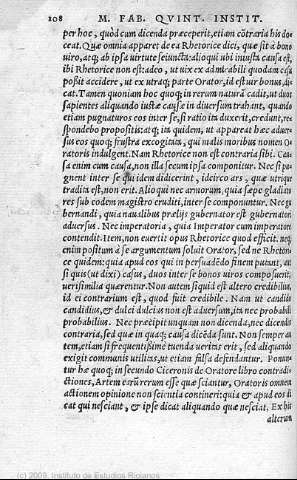 108 M. FAB. QVINT. INSTIT.
per hoc, quòd cum dicenda præceperit, etiam cōtraria his do-
ceat. Quæ omnia apparet de ea Rhetorice dici, quæ sit à bono
uiro, atq; ab ipsa uirtute seiuncta: alioqui ubi iniusta causa est,
ibi Rhetorice non est: adeo, ut uix ex admirabili quodam casu
posſit accidere, ut ex utraq; parte Orator, id est uir bonus, di-
cat. Tamen quoniam hoc quoq; in rerum natura cadit, ut duos
sapientes aliquando iustæ causæ in diuersum trahant, quando
etiam pugnaturos eos inter se, si ratio ita duxerit, credunt, re-
spondebo propositis: atq; ita quidem, ut appareat hæc aduer-
sus eos quoq; frustra excogitata, qui malis moribus nomen O-
ratoris indulgent. Nam Rhetorice non est contraria sibi. Cau-
sa enim cum causa, non illa secum ipsa componitur. Nec si pu-
gnent inter se qui idem didicerint, idcirco ars, quæ utriq;
tradita est, non erit. Alioqui nec armorum, quia sæpe gladiato
res sub eodem magistro eruditi, inter se componuntur. Nec gu
bernandi, quia naualibus prælijs gubernator est gubernatori
aduersus. Nec imperatoria, quia Imperator cum imperatore
contendit. Item, non euertit opus Rhetorice quod efficit. neq;
enim positum à se argumentum soluit Orator, sed ne Rhetori-
ce quidem: quia apud eos qui in persuadēdo finem putant, aut
si quis (ut dixi) casus, duos inter se bonos uiros composuerit,
uerisimilia quærentur. Non autem si quid est altero credibilius,
id ei contrarium est, quod fuit credibile. Nam ut candido
candidius, & dulci dulcius non est aduersum, ita nec probabili
probabilius. Nec præcipit unquam non dicenda, nec dicendis
contraria, sed quæ in quaq; causa dicēda sunt. Non semper au
tem, etiam si frequentissimè tuenda ueritas erit, sed aliquando
exigit communis utilitas, ut etiam falsa defendantur. Ponun-
tur hæ quoq; in secundo Ciceronis de Oratore libro contradi-
ctiones, Artem earū rerum esse quæ sciantur, Oratoris omnem
actionem opinione non scientia contineri: quia & apud eos di
cat qui nesciant, & ipse dicat aliquando quæ nesciat. Ex his
alterum
(c) 2009, Instituto de Estudios Riojanos